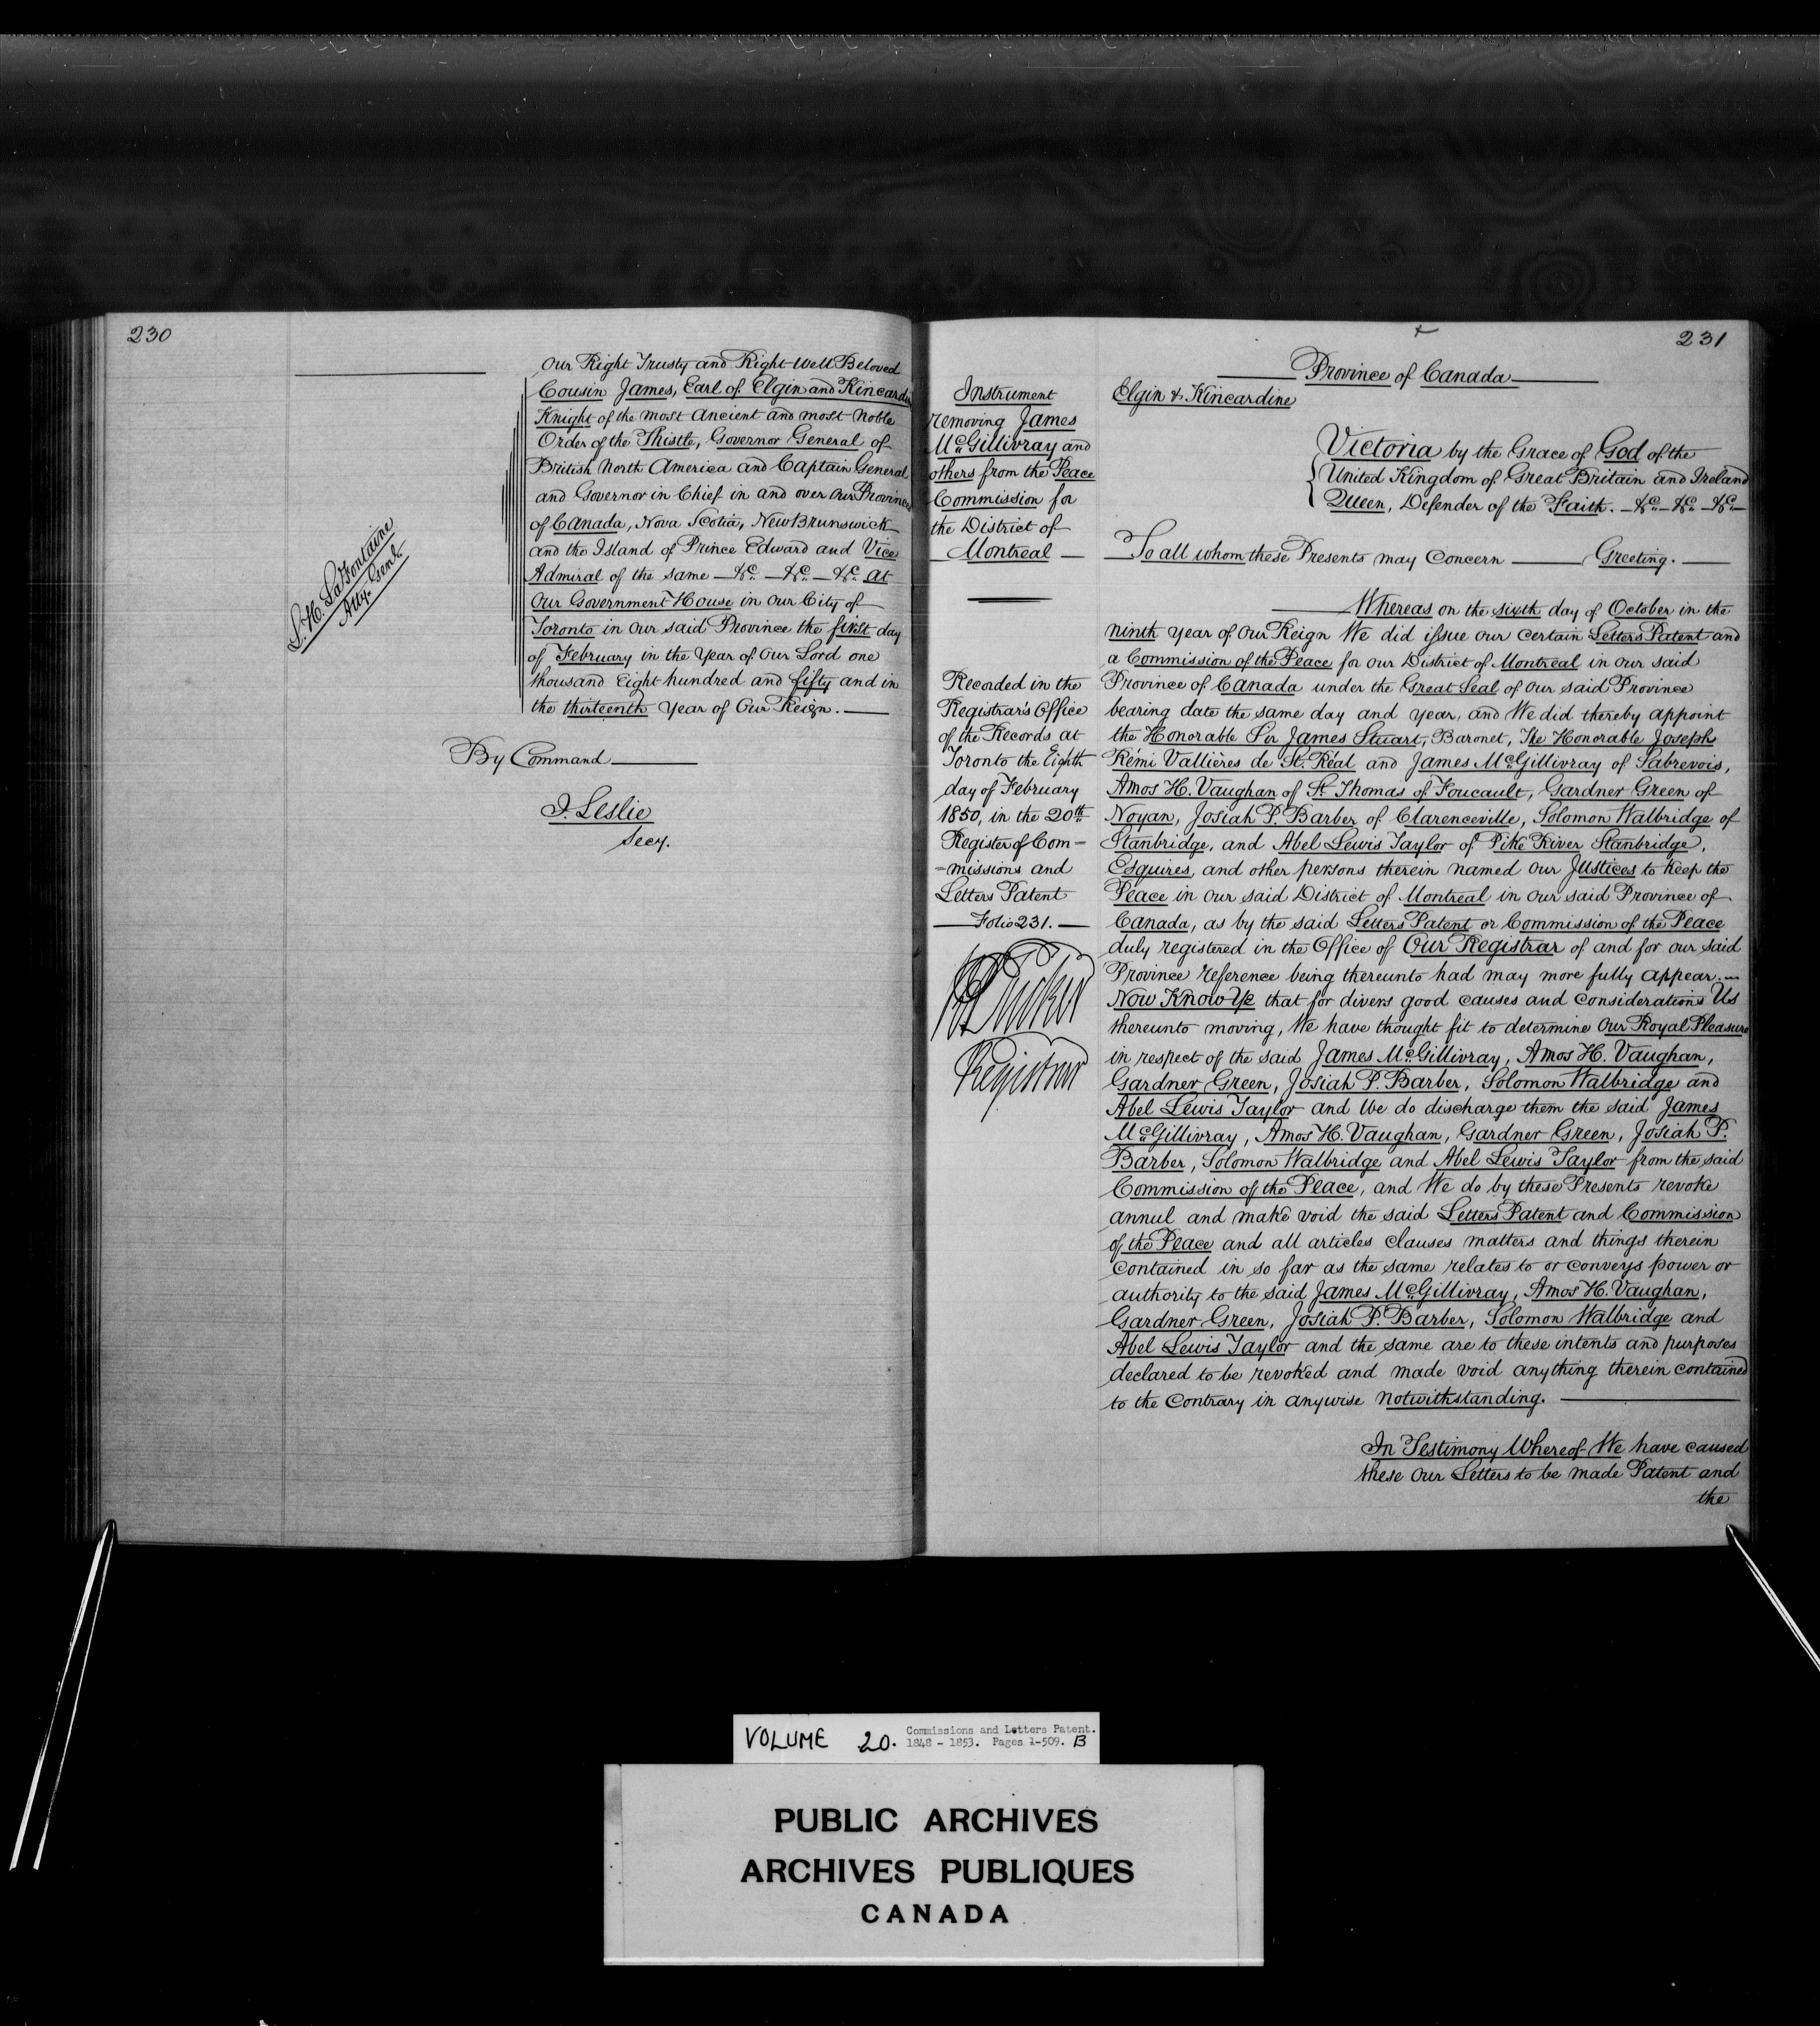 230
our Right Trusty and Right Well Beloved
Cousin James, Earl of Elgin and Kincardine
Knight of the most Ancient and most Noble
Order of the Thistle, Governor General of
British North America and Captain General
and Governor in Chief in and over our Provinces
of Canada, Nova Scotia, New Brunswick
and the Island of Prince Edward and Vice
Admiral of the same — &c. — &c. — &c. at
Our Government House in our City of
Toronto in our said Province the first day
of February in the Year of Our Lord one
thousand Eight hundred and fifty and in
the thirteenth Year of Our Reign. —
L. H. LaFontaine
Atty. Genl.
By Command —
J. Leslie
Secy.
231
Province of Canada
Elgin & Kincardine
Instrument
removing James
McGillivray and
others from the Peace
Commission for
the District of
— Montreal —
Recorded in the
Registrar's Office
of the Records at
Toronto the Eighth
day of February
1850, in the 20th
Register of Com=
=missions and
Letters Patent
— Folio 231. —
Registrar
Victoria by the Grace of God of the
United Kingdom of Great Britain and Ireland
Queen, Defender of the Faith. — &c. — &c. — &c. —
To all whom these Presents may Concern — Greeting. —
— Whereas on the sixth day of October in the
ninth Year of Our Reign We did issue our certain Letters Patent and
a Commission of the Peace for our District of Montreal in our said
Province of Canada under the Great Seal of our said Province
bearing date the same day and year, and We did thereby appoint
the Honorable Sir James Stuart, Baronet, The Honorable Joseph
Rémi Vallières de St. Réal and James McGillivray of Sabrevois,
Amos H. Vaughan of St. Thomas of Foucault, Gardner Green of
Noyan, Josiah P. Barber of Clarenceville, Solomon Walbridge of
Stanbridge, and Abel Lewis Taylor of Pike River Stanbridge,
Esquires, and other persons therein named our Justices to keep the
Peace in our said District of Montreal in our said Province of
Canada, as by the said Letters Patent or Commission of the Peace
duly registered in the Office of Our Registrar of and for our said
Province reference being thereunto had may more fully appear. —
Now Know Ye that for divers good causes and considerations Us
thereunto moving, We have thought fit to determine Our Royal Pleasure
in respect of the said James McGillivray, Amos H. Vaughan,
Gardner Green, Josiah P. Barber, Solomon Walbridge and
Abel Lewis Taylor and We do discharge them the said James
McGillivray, Amos H. Vaughan, Gardner Green, Josiah P.
Barber, Solomon Walbridge and Abel Lewis Taylor from the said
Commission of the Peace, and We do by these Presents revoke
annul and make void the said Letters Patent and Commission
of the Peace and all articles clauses matters and things therein
contained in so far as the same relates to or conveys power or
authority to the said James McGillivray, Amos H. Vaughan,
Gardner Green, Josiah P. Barber, Solomon Walbridge and
Abel Lewis Taylor and the same are to these intents and purposes
declared to be revoked and made void anything therein contained
to the Contrary in anywise notwithstanding. —
In Testimony Whereof We have caused
these our Letters to be made Patent and
the
VOLUME 20. Commissions and Letters Patent.
1848 - 1853. Pages 1-509. B
PUBLIC ARCHIVES
ARCHIVES PUBLIQUES
CANADA